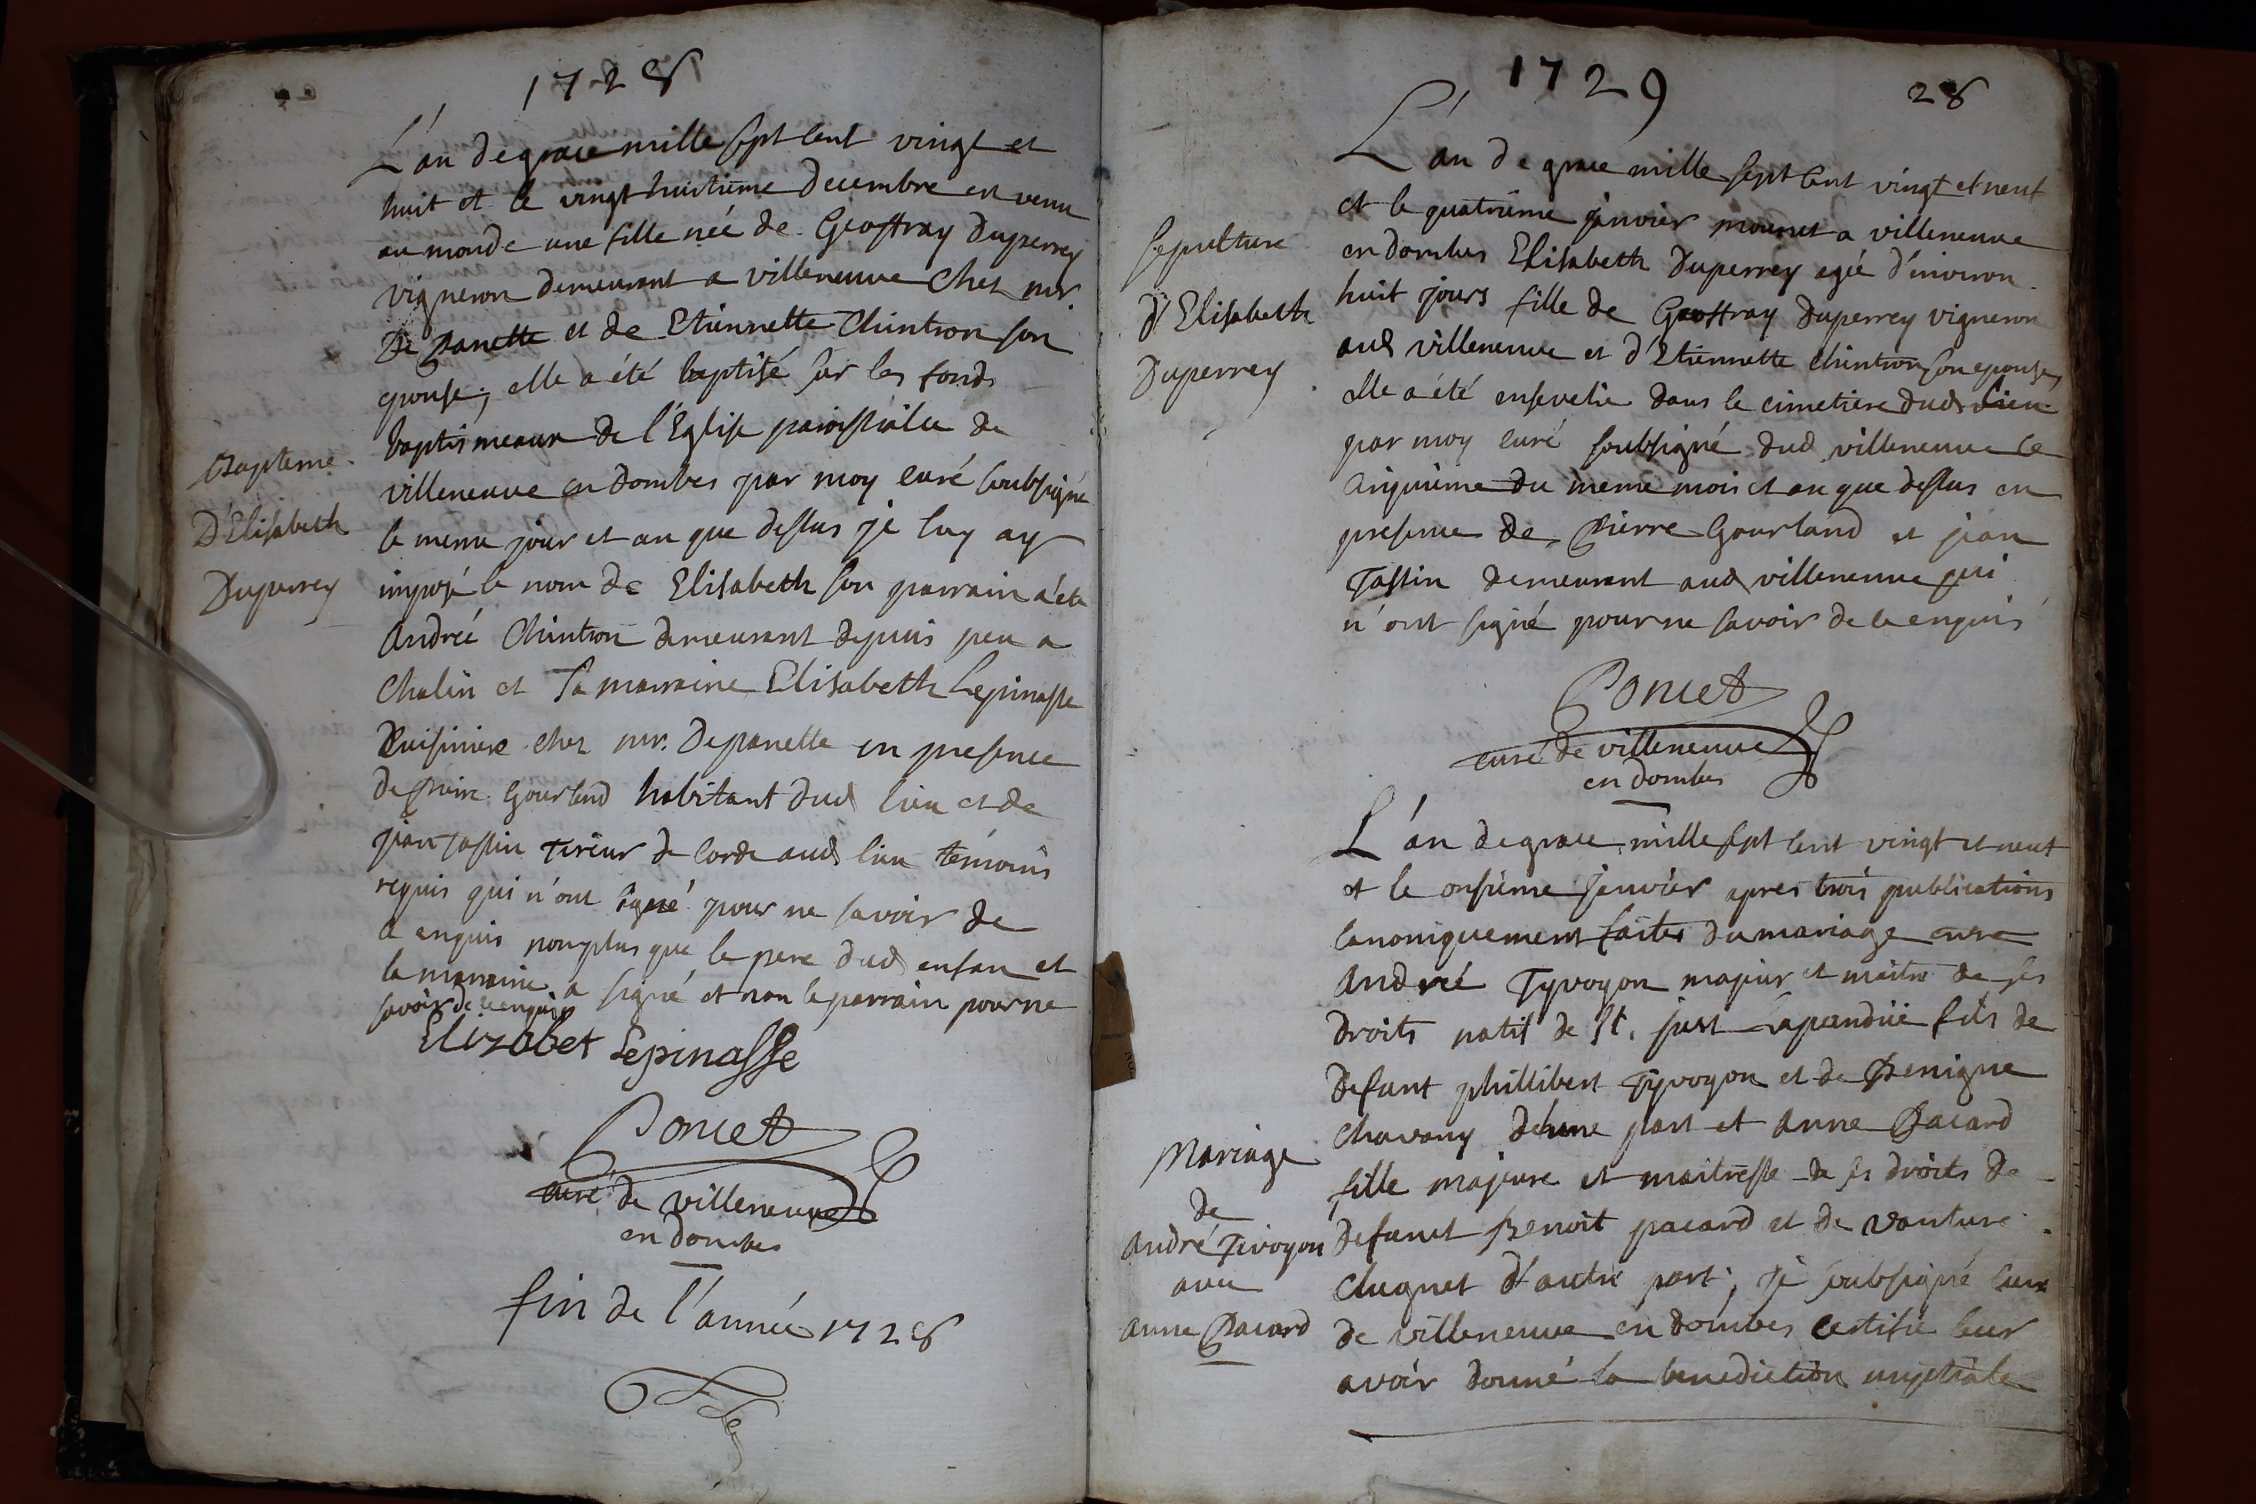 1728
L'an de grace mille sept cent vingt et
huit et le vingt huitieme decembre est venu
au monde une fille née de Geoffray Duperrey
vigneron demeurant a villeneuve chez mr.
De Panette et de Etiennette Chintron son
epouse; elle a été baptisé sur les fonds
baptismeaux de l'Eglise paroissialle de
villeneuve en Dombes par moy curé soubsigné
le meme jour et an que dessus je luy ay
imposé le nom de Elisabeth son parrain a été
André Chintron demeurant depuis peu a
Chalin et sa marraine Elisabeth Lepinasse
Cuisiniere chez mr. Depanette en presence
de Pierre Gourland habitant dud lieu et de
jean Tassin Tireur de corde aud lieu témoins
requis qui n'ont signé pour ne savoir de
ce enquis nonplus que le pere dud enfan et
la marraine a signé et non le parrain pour ne
savoir de ce enquis
Elizabet Lepinasse
Poncet
curé de villeneuve
en dombes
fin de l'année 1728
Bapteme
D'Elisabeth
Duperrey
1729
28
L'an de grace mille sept cent vingt et neuf
et le quatrieme janvier mourut a villeneuve
en dombes Elisabeth Duperrey agée d'environ
huit jours fille de Geoffray Duperrey vigneron
aud villeneuve et d'Etiennette Chintron son epouse,
elle a été ensevelie dans le cimetiere dud lieu
par moy curé soubsigné dud villeneuve le
cinquieme du meme mois et an que dessus en
presence de Pierre Gourland et jean
Tassin demeurant aud villeneuve qui
n'ont signé pour ne savoir de ce enquis
Poncet
curé de villeneuve
en dombes
sepulture
d'Elisabeth
Duperrey
L'an de grace mille sept cent vingt et neuf
et le onsieme janvier apres trois publications
canoniquement faites du mariage entre
André Tyvoyon majeur et maitre de ses
droits natif de St. just fils de
defunt phillibert Tyvoyon et de Benigne
Chavany d'une part et Anne Pacard
fille majeure et maitresse de ses droits de
defunct Benoit pacard et de vanture
Clugnet d'autre part; je soubsigné curé
de villeneuve en dombes certifie leur
avoir donné la benediction nuptiale
Mariage
de
André Tivoyon
avec
Anne Pacard